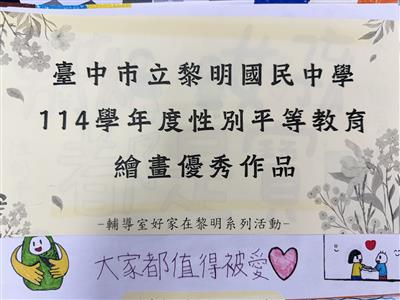 臺中市立黎明國民中學
114學年度性別平等教育
繪畫優秀作品
-輔導室好家在黎明系列活動-
大家都值得被愛